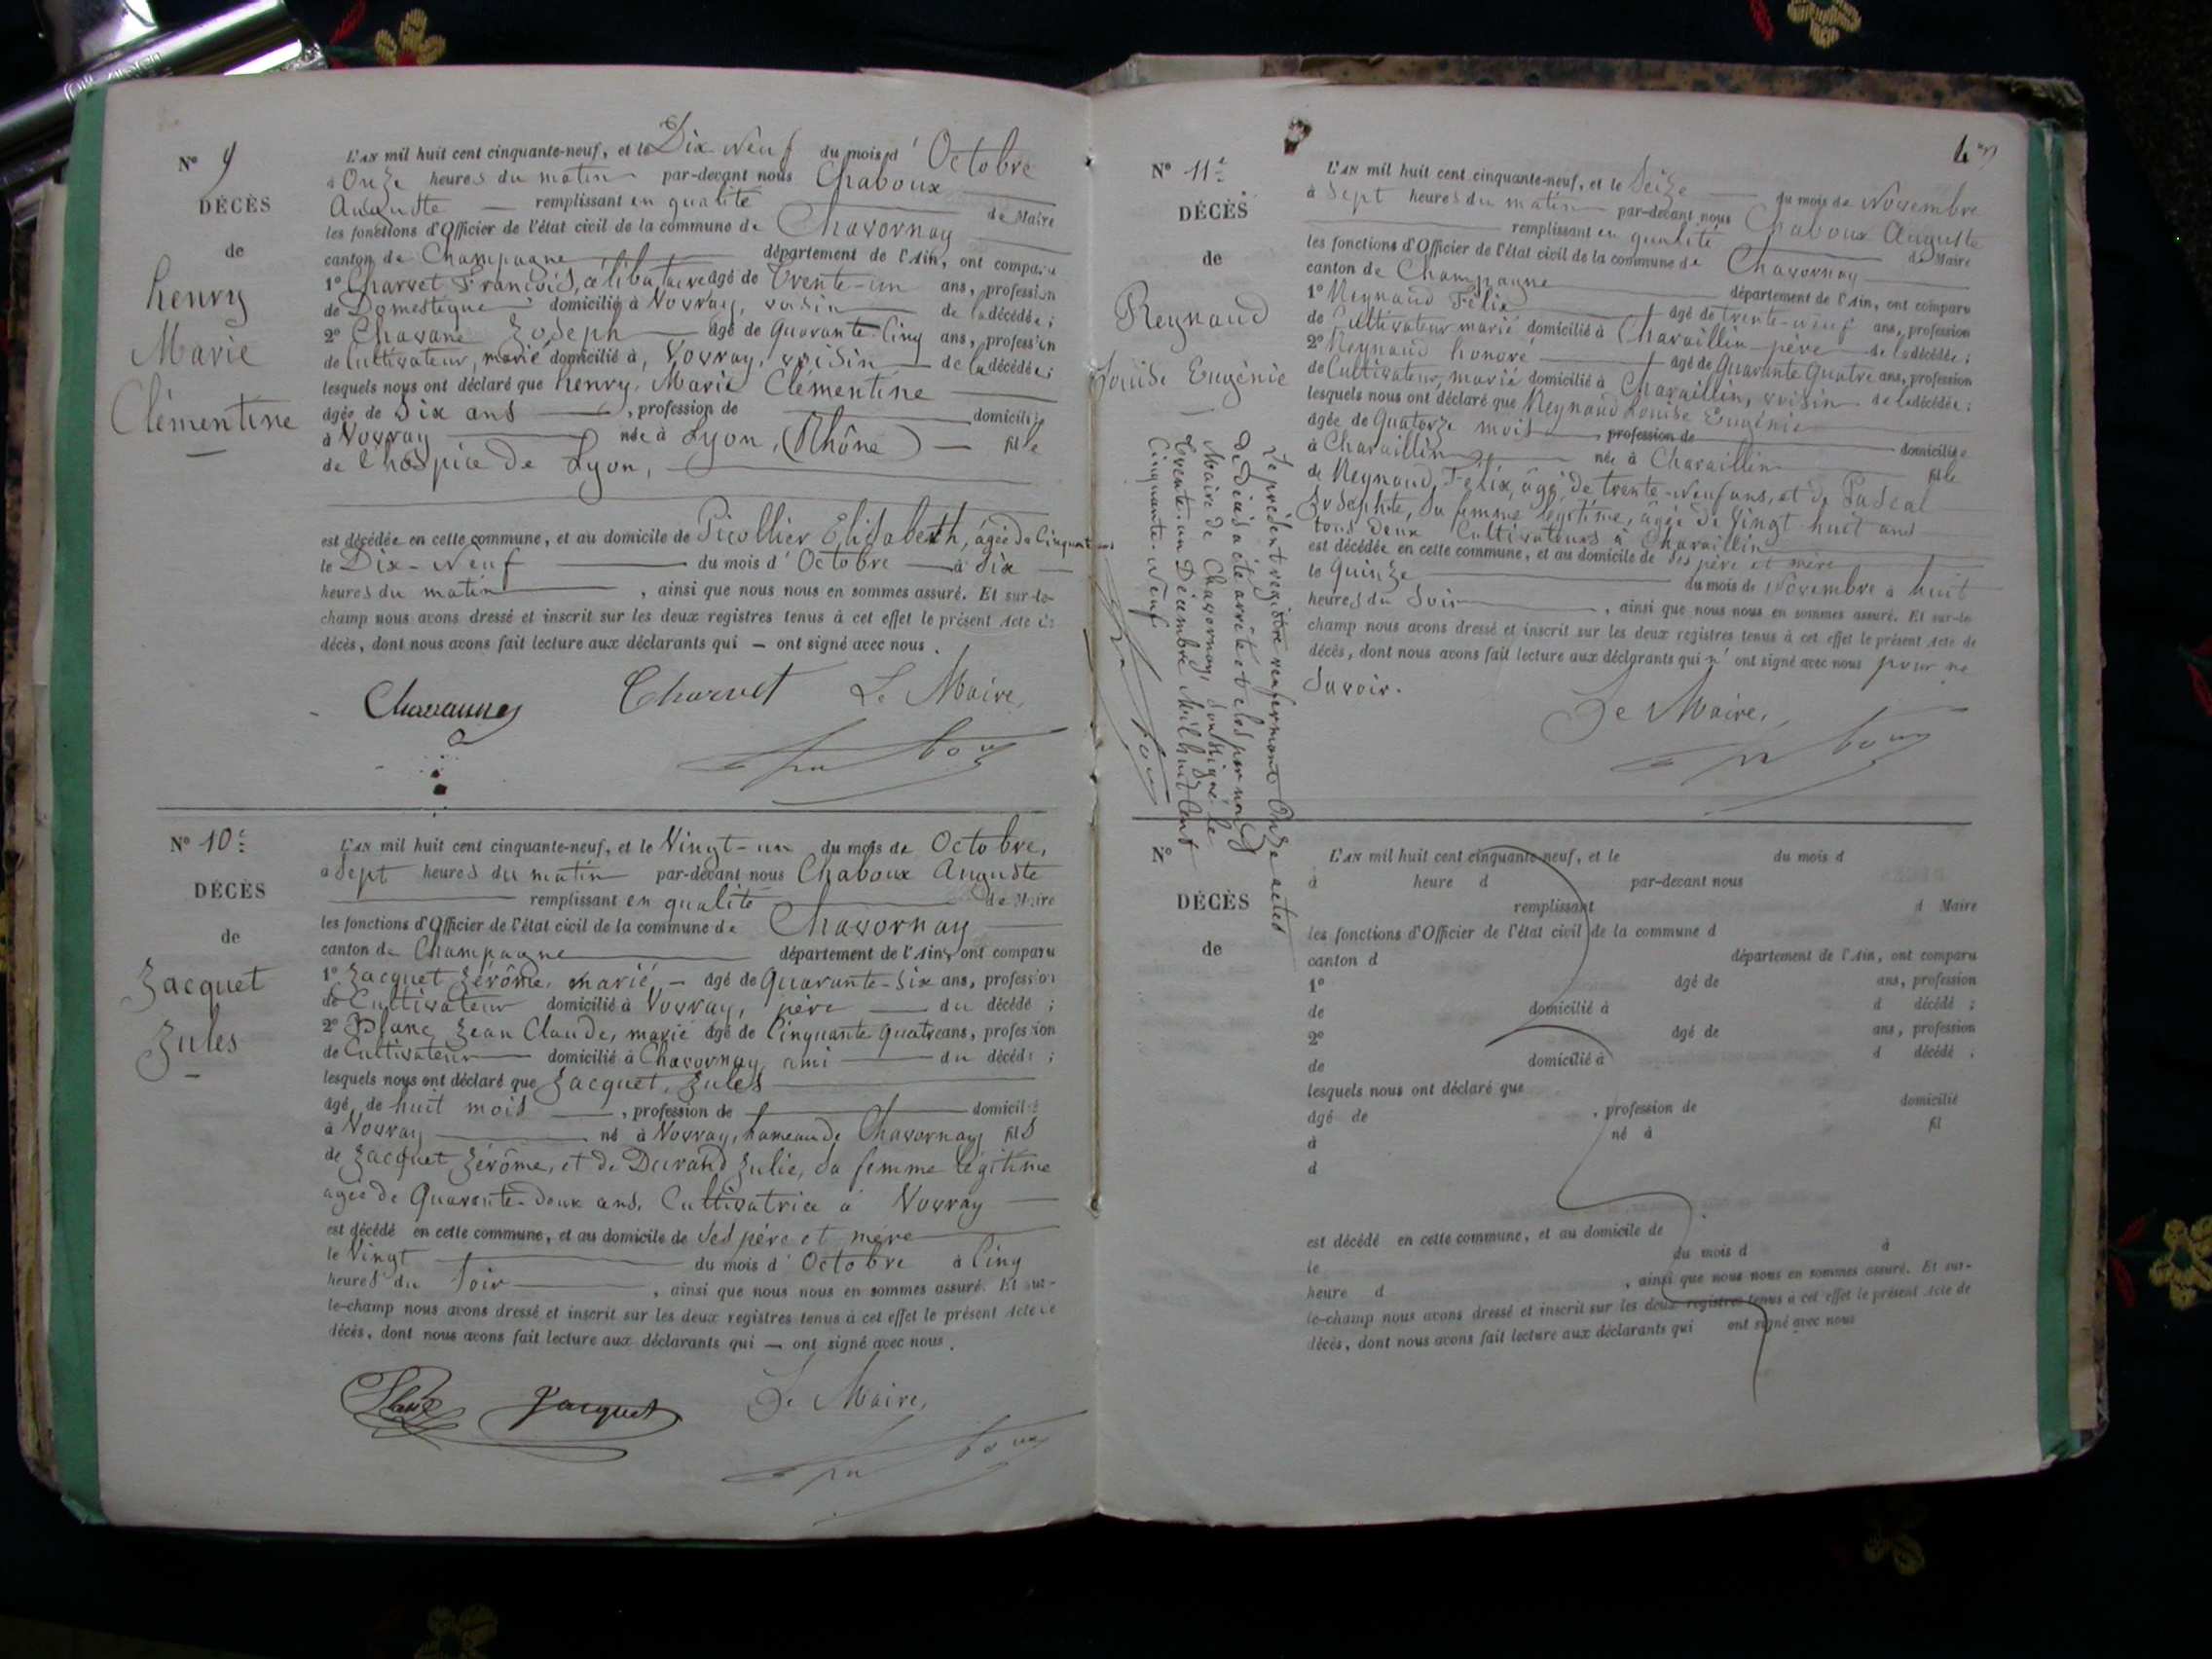 N° 9
DÉCÈS
de
henry
Marie
Clémentine
L'AN mil huit cent cinquante-neuf, et le Dix-Neuf du mois d'Octobre
à Onze heures du matin par-devant nous Chaboux
Auguste remplissant en qualité de Maire
les fonctions d'Officier de l'état civil de la commune de Chavornay
canton de Champagne département de l'Ain, ont comparu
1° Charvet François, célibataire âgé de trente-un ans, profession
de Domestique domicilié à Vovray, voisin de la décédée;
2° Chavane Joseph âgé de Quarante-Cinq ans, profession
de Cultivateur, marié domicilié à, Vovray, voisin de la décédée;
lesquels nous ont déclaré que henry, Marie Clémentine
âgée de Six ans, profession de domicilié
à Vovray née à Lyon, (Rhône) fille
de l'hospice de Lyon,
est décédée en cette commune, et au domicile de Picollier Elisabeth, âgée de Cinquante ans
le Dix-Neuf du mois d'Octobre à Six
heures du matin, ainsi que nous nous en sommes assuré. Et sur-le-
champ nous avons dressé et inscrit sur les deux registres tenus à cet effet le présent Acte de
décès, dont nous avons fait lecture aux déclarants qui — ont signé avec nous.
Chavannes Charvet Le Maire,
Chaboux
N° 10e
DÉCÈS
de
Jacquet
Jules
L'AN mil huit cent cinquante-neuf, et le Vingt-un du mois de Octobre,
à Sept heures du matin par-devant nous Chaboux Auguste
remplissant en qualité de Maire
les fonctions d'Officier de l'état civil de la commune de Chavornay
canton de Champagne département de l'Ain, ont comparu
1° Jacquet Jérôme, marié, — âgé de Quarante-Six ans, profession
de Cultivateur domicilié à Vovray, père du décédé;
2° Blanc Jean Claude, marié âgé de Cinquante Quatre ans, profession
de Cultivateur domicilié à Chavornay, ami du décédé;
lesquels nous ont déclaré que Jacquet, Jules
âgé de huit mois, profession de domicilié
à Vovray né à Vovray, hameau de Chavornay fils
de Jacquet Jérôme, et de Durand Julie, sa femme légitime
agée de Quarante-Deux ans, Cultivatrice à Vovray
est décédé en cette commune, et au domicile de Ses père et mère
le Vingt du mois d'Octobre à Cinq
heures du Soir, ainsi que nous nous en sommes assuré. Et sur-
le-champ nous avons dressé et inscrit sur les deux registres tenus à cet effet le présent Acte de
décès, dont nous avons fait lecture aux déclarants qui — ont signé avec nous.
Blanc Jacquet Le Maire,
Chaboux
N° 11e
DÉCÈS
de
Reynaud
Louise Eugénie
L'AN mil huit cent cinquante-neuf, et le Seize du mois de Novembre
à Sept heures du matin par-devant nous Chaboux Auguste
remplissant en qualité de Maire
les fonctions d'Officier de l'état civil de la commune de Chavornay
canton de Champagne département de l'Ain, ont comparu
1° Reynaud Félix âgé de trente-neuf ans, profession
de Cultivateur marié domicilié à Charaillin père de la décédée;
2° Reynaud honoré âgé de Quarante Quatre ans, profession
de Cultivateur, marié domicilié à Charaillin, voisin de la décédée;
lesquels nous ont déclaré que Reynaud Louise Eugénie
âgée de Quatorze mois, profession de domiciliée
à Charaillin née à Charaillin fille
de Reynaud, Félix, âgé de trente-neuf ans, et de Pascal
Josephte, sa femme légitime, âgée de Vingt huit ans
tous deux Cultivateurs à Charaillin
est décédée en cette commune, et au domicile de Ses père et mère
le Quinze du mois de Novembre à huit
heures du Soir, ainsi que nous nous en sommes assuré. Et sur-le-
champ nous avons dressé et inscrit sur les deux registres tenus à cet effet le présent Acte de
décès, dont nous avons fait lecture aux déclarants qui n'ont signé avec nous pour ne
Savoir.
Le Maire,
Chaboux
Le présent registre renfermant Onze actes
de Décès a été arrêté et clos par nous
Maire de Chavornay, soussigné le
trente-un Décembre Mil huit Cent
Cinquante-Neuf.
Chaboux
N°
DÉCÈS
de
L'AN mil huit cent cinquante-neuf, et le du mois d
à heure d par-devant nous
remplissant d Maire
les fonctions d'Officier de l'état civil de la commune d
canton d département de l'Ain, ont comparu
1° âgé de ans, profession
de domicilié à d décédé;
2° âgé de ans, profession
de domicilié à d décédé.
lesquels nous ont déclaré que
âgé de, profession de domicilié
à né à fil
d
est décédé en cette commune, et au domicile de
le du mois d à
heure d, ainsi que nous nous en sommes assuré. Et sur-
le-champ nous avons dressé et inscrit sur les deux registres tenus à cet effet le présent Acte de
décès, dont nous avons fait lecture aux déclarants qui ont signé avec nous